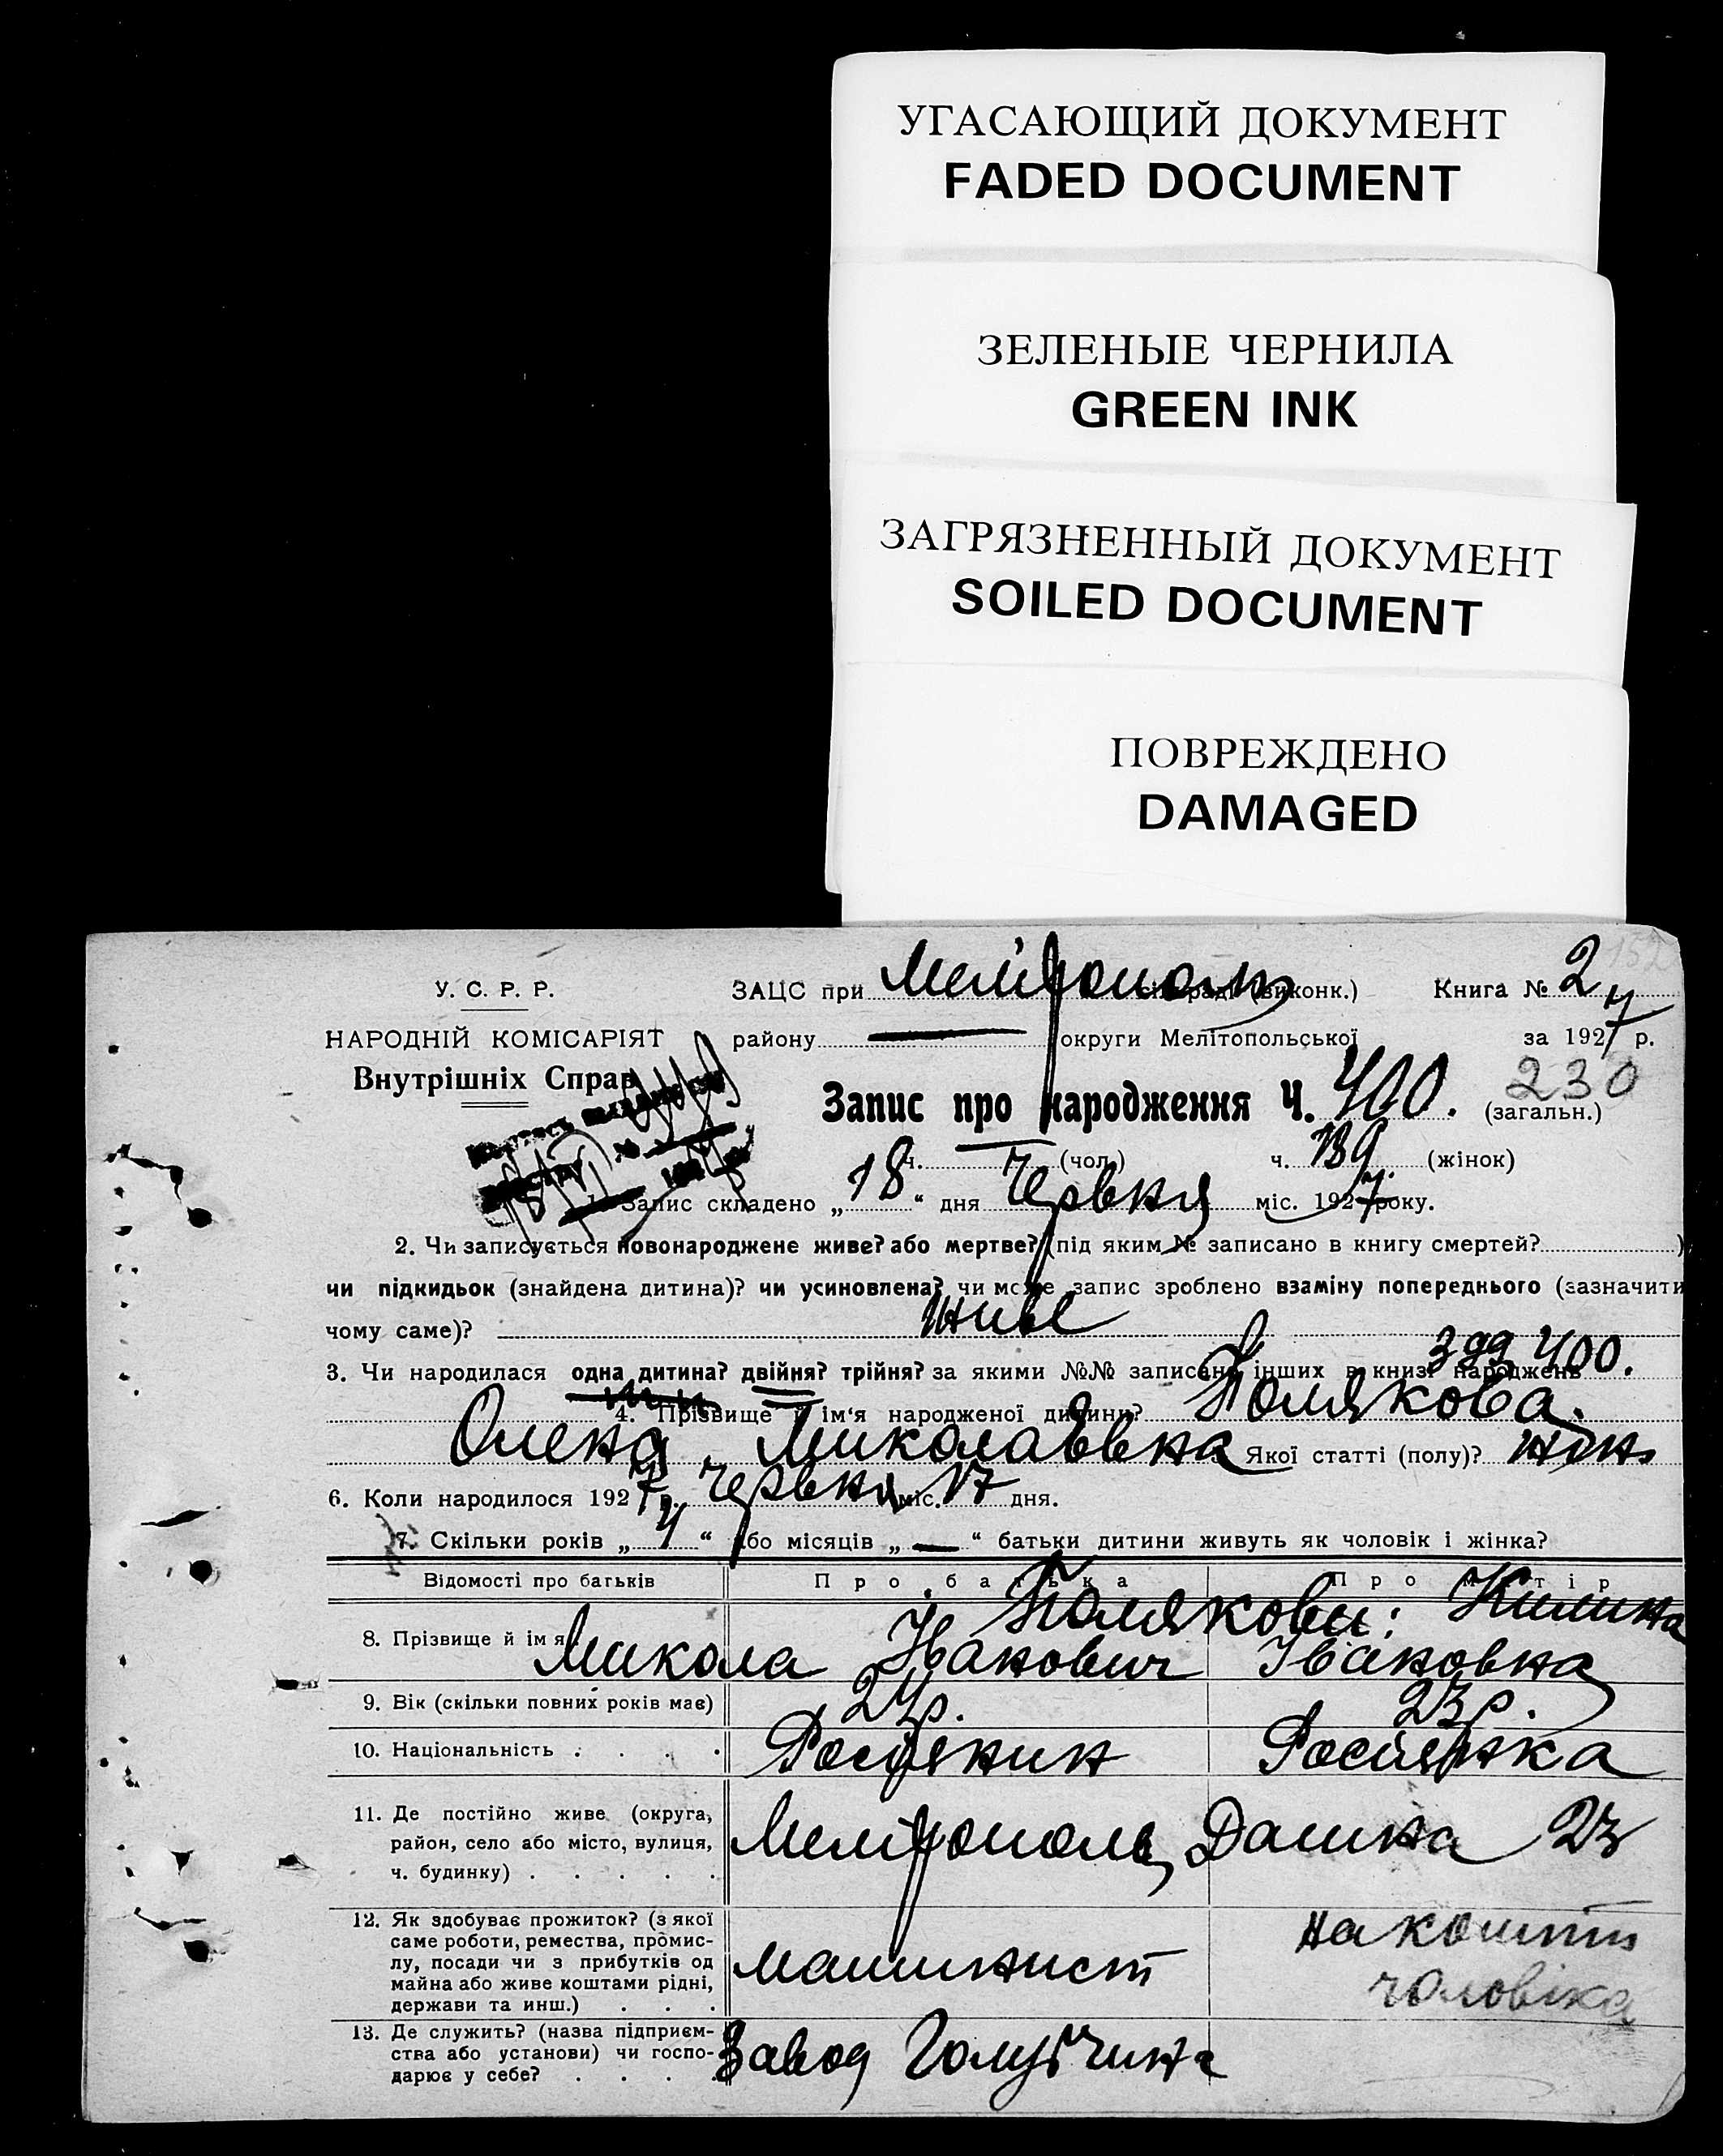 УГАСАЮЩИЙ ДОКУМЕНТ
FADED DOCUMENT
ЗЕЛЕНЫЕ ЧЕРНИЛА
GREEN INK
ЗАГРЯЗНЕННЫЙ ДОКУМЕНТ
SOILED DOCUMENT
ПОВРЕЖДЕНО
DAMAGED
152
У. С. Р. Р. ЗАЦС при Мелітополь (виконк.) Книга № 2
НАРОДНІЙ КОМІСАРІЯТ району — округи Мелітопольської за 1927 р.
Внутрішніх Справ
Запис про народження Ч. 400. (загальн.) 230
ч. — (чол.) ч. 189 (жінок)
1. Запис складено „18“ дня Червня міс. 1927 року.
2. Чи записується новонароджене живе? або мертве? (під яким № записано в книгу смертей?)
чи підкидьок (знайдена дитина)? чи усиновлена? чи може запис зроблено взаміну попереднього (зазначити
чому саме)? живе
3. Чи народилася одна дитина? двійня? трійня? за якими №№ записано інших в книзі народжень 399 400.
4. Прізвище й ім'я народженої дитини? Полякова.
Олена Миколаєвна Якої статті (полу)? жін
6. Коли народилося 1927 р. Червня міс. 17 дня.
7. Скільки років „4“ або місяців „—“ батьки дитини живуть як чоловік і жінка?
Відомості про батьків Про батька Про матір
8. Прізвище й ім'я Полякови: Килина
Микола Іванович Івановна
9. Вік (скільки повних років має) 24р. 23р.
10. Національність . . . . Росіянин Росіянка
11. Де постійно живе (округа,
район, село або місто, вулиця, Мелітополь, Дашка 23
ч. будинку) . . . . .
12. Як здобуває прожиток? (з якої
саме роботи, ремества, промис- на кошти
лу, посади чи з прибутків од машинист
майна або живе коштами рідні, чоловіка
держави та инш.) . . .
13. Де служить? (назва підприєм-
ства або установи) чи госпо- Завод
дарює у себе? . . . .